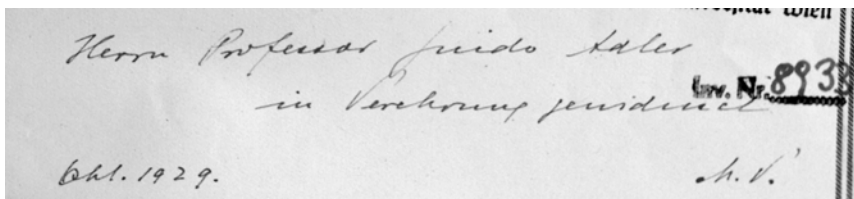 Wien
Herrn Professor Guido Adler
Inv. Nr. 8933
in Verehrung gewidmet
Okt. 1929.
M. P.